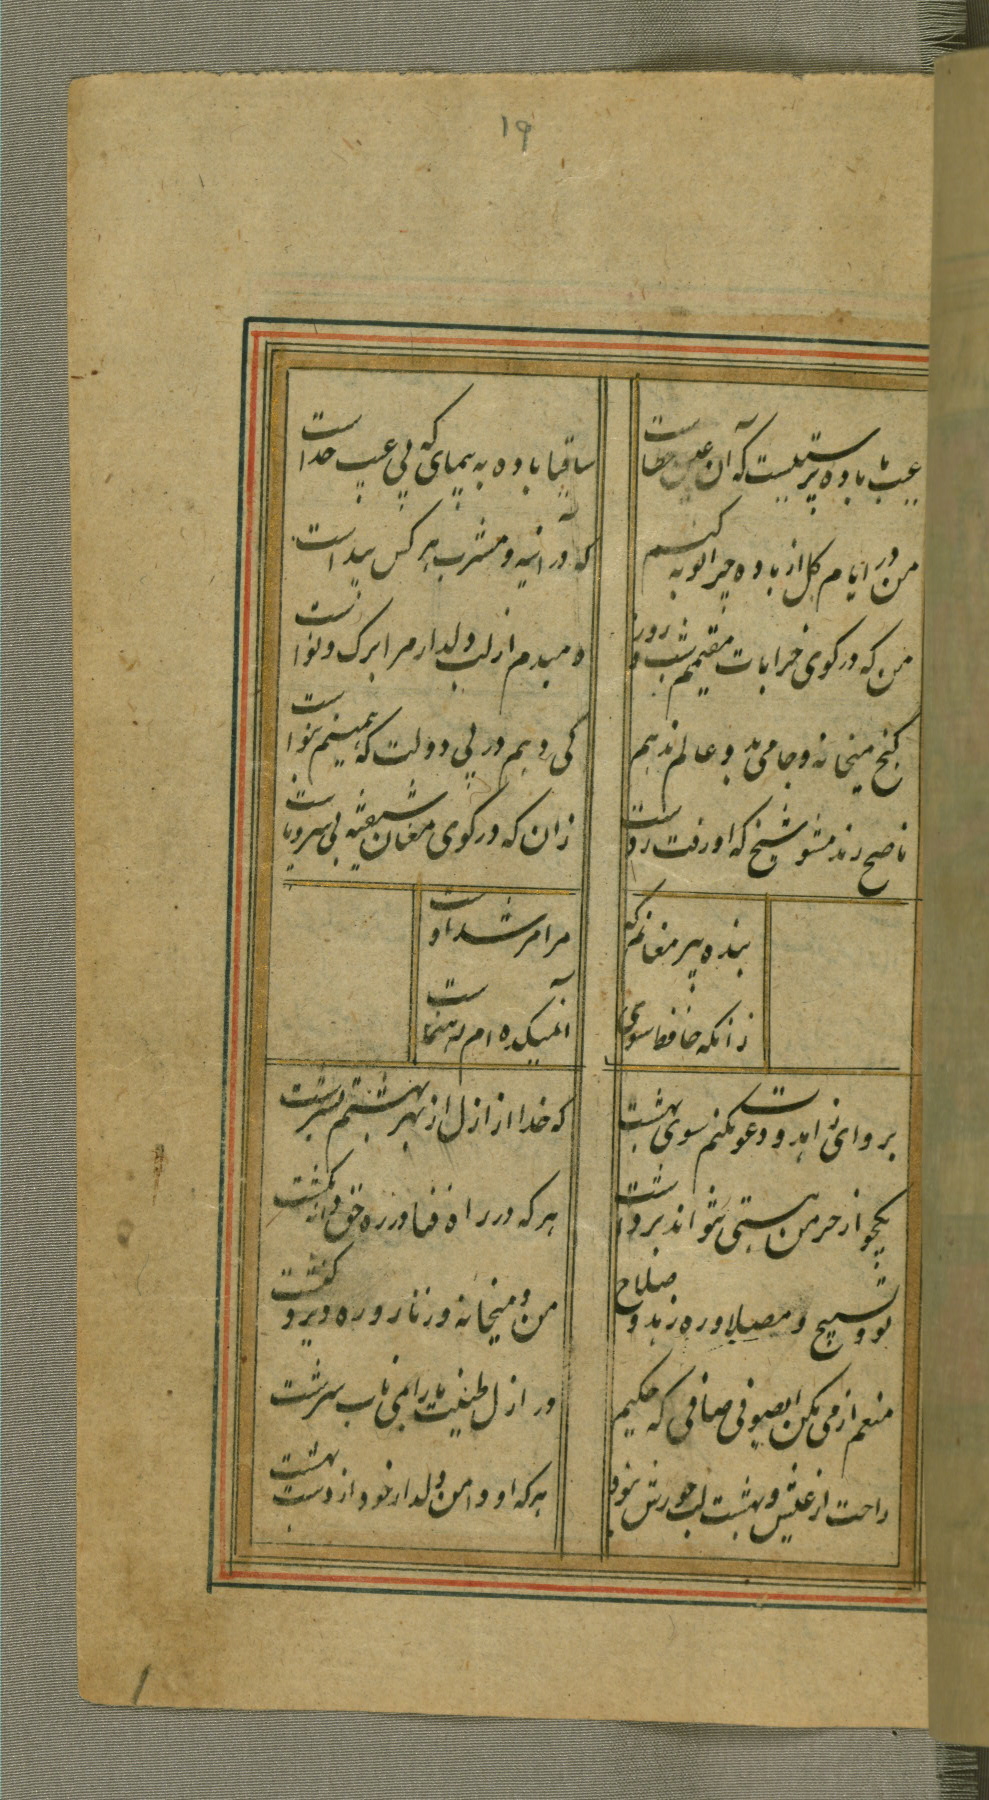 ۱۹
عیب ما باده پرستیست که آن عین خطاست
ساقیا باده به پیمای که بی عیب خداست
من در ایام گل از باده چرا توبه کنم
که در آئینه و مشرب هر کس پیداست
من که در کوی خرابات مقیمم شب و روز
ه مبدم از لب دلدار مرا برگ و نواست
کنج میخانه و جامی بدو عالم ندهم
کی دهم در پی دولت که همینم بنواست
ناصح رند مشو شیخ که او رفت ز دست
زان که در کوی مغان شیفته بی سر و پاست
بنده پیر مغانم که
مرا مرشد اوست
زانکه حافظ سوی
آن میکده ام راهنماست
برو ای زاهد و دعوت مکنم سوی بهشت
که خدا از ازل از بهر بهشتم بسرشت
یکجو از خرمن هستی نتواند برداشت
هر که در راه فنا در ره حق دانه نکشت
تو و تسبیح و مصلا و ره زهد و صلاح
من و میخانه و زنار و ره دیر و کنشت
منعم از می مکن ای صوفی صافی که حکیم
در ازل طینت ما را بمی ناب سرشت
راحت از عیش و بهشت لب حورش نبود
هر که او دامن دلدار خود از دست بهشت